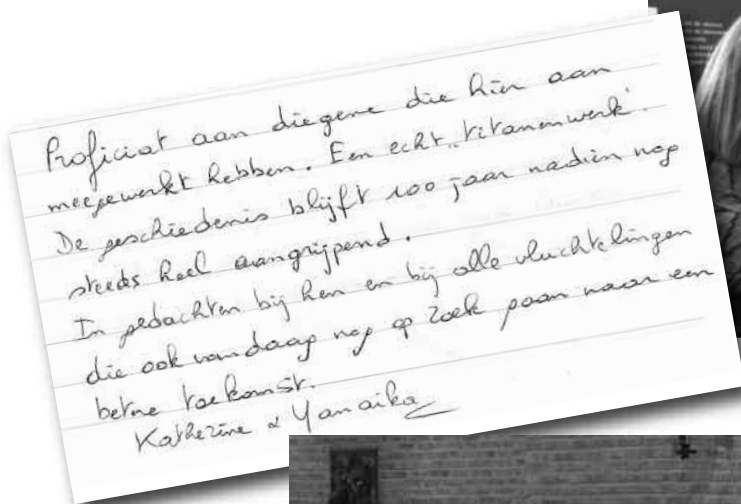 Proficiat aan diegene die hier aan
meegewerkt hebben. Een echt „titanenwerk".
De geschiedenis blijft 100 jaar nadien nog
steeds heel aangrijpend.
In gedachten bij hen en bij alle vluchtelingen
die ook vandaag nog op zoek gaan naar een
betere toekomst.
Katherine & Yanaika